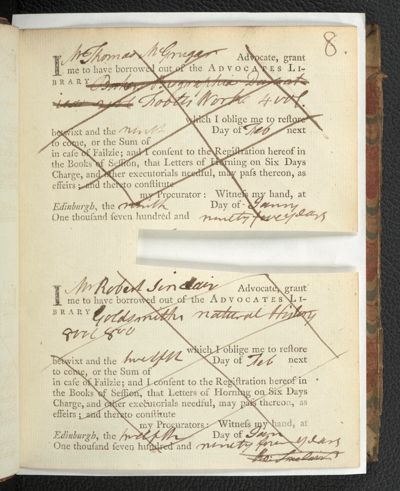 8.
I Mr Thomas McGrugar Advocate, grant
me to have borrowed out of the ADVOCATES LI-
BRARY
Foote's Works 4 vols
which I oblige me to reſtore
betwixt and the ninth Day of Feb next
to come, or the Sum of
in caſe of Failzie; and I conſent to the Regiſtration hereof in
the Books of Seſſion, that Letters of Horning on Six Days
Charge, and other executorials needful, may paſs thereon, as
effeirs; and thereto conſtitute
my Procurator: Witneſs my hand, at
Edinburgh, the ninth Day of Janry
One thouſand ſeven hundred and ninety five years
I Mr Robert Sinclair Advocate, grant
me to have borrowed out of the ADVOCATES LI-
BRARY Goldsmiths natural History
8 vols 8vo
which I oblige me to reſtore
betwixt and the twelfth Day of Feb next
to come, or the Sum of
in caſe of Failzie; and I conſent to the Regiſtration hereof in
the Books of Seſſion, that Letters of Horning on Six Days
Charge, and other executorials needful, may paſs thereon, as
effeirs; and thereto conſtitute
my Procurators: Witneſs my hand, at
Edinburgh, the twelfth Day of Janry
One thouſand ſeven hundred and ninety five years
Ro. Sinclair